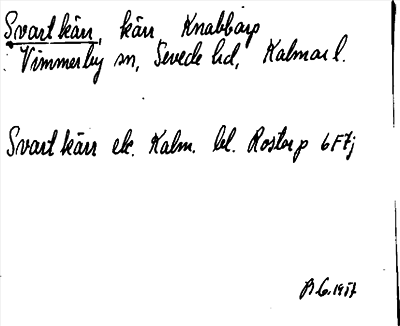 Svartkärr, kärr, Knabbarp
Vimmerby sn, Sevede hd, Kalmar l.
Svartkärr ek. Kalm. bl. Rostorp 6F7j
1957